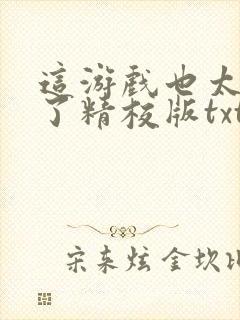 這游戲也太
了精校版txt
宋来炫金坎比